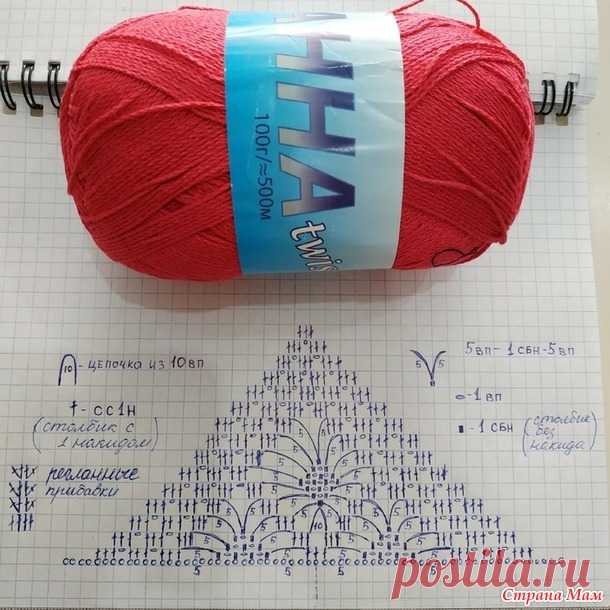 АННА
twis
100г/≈500м
10 - цепочка из 10 вп
† - СС1Н
(столбик с
1 накидом)
регланные
прибавки
5 5
5вп - 1сбн - 5вп
- 1 вп
- 1 СБН (столбик
без
накида)
5 5
5 5
5 5
5 5
10
5 5 5 5
postila.ru
Страна Мам